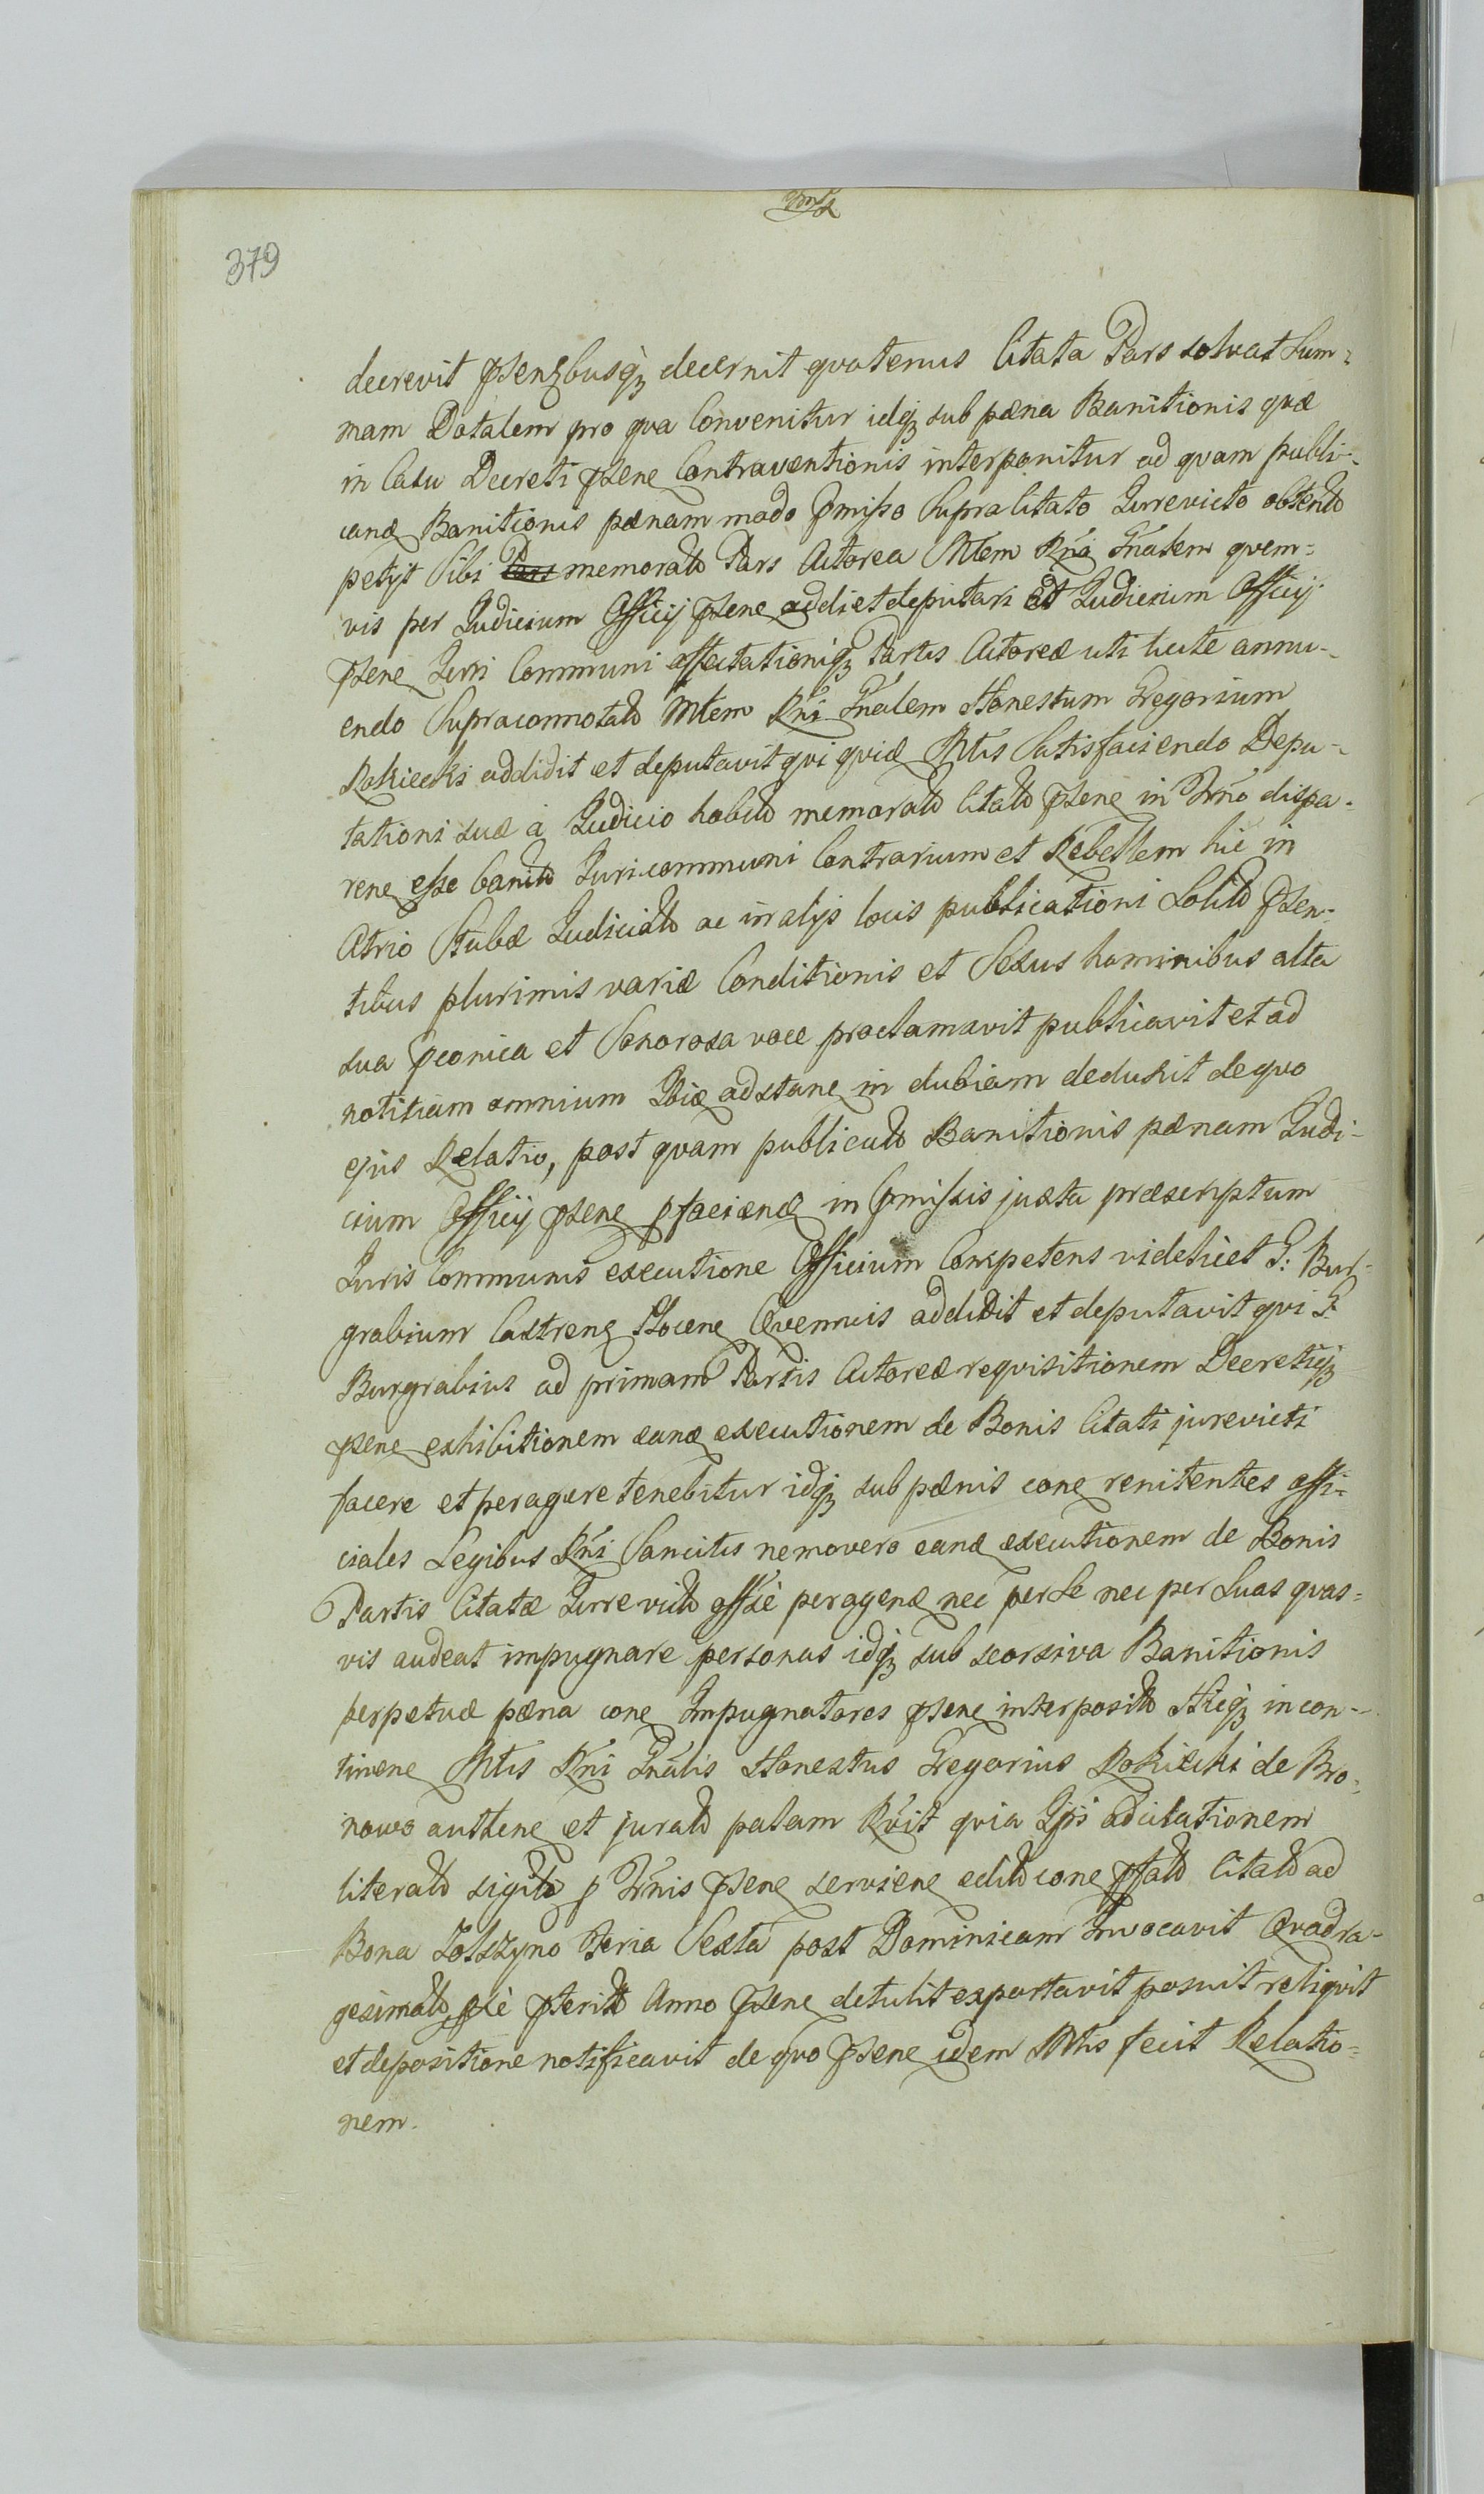 379
decrevit psen̄busq̀ꝫ decernit qvatenus Citata Pars solvat Sum=
mam Dotalem pro qva Convenitur idqꝫ sub pæna Banitionis qvæ
in Casu Decreti psene Contraventionis interponitur ad qvam publi=
canæ Banitionis pænam modo pmisso Supra Citato Jurevicto obtento
petyt Sibi Pars memorato Pars Actorea Mtem Rni Gnalem qvem=
vis per Judicium Officij psene addi et deputari Et Judicium Officij
psene Juri Communi affectationiqꝫ Partis Actoreæ uti licite annu=
endo Supraconnotato Mtem Rni Gnalem Honestum Gregorium
Rokiecki addidit et deputavit qvi qvid Mtis Satisfaciendo Depu=
tationi suæ à Judicio habito memorato Citato psene in Trno dispa=
rene esse banito Juri communi Contrarium et Rebellem hic in
Atrio Stubæ Judicialo ac in alijs locis publicationi Solito psen=
tibus plurimis variæ Conditionis et Sexus hominibus alta
sua pconica et Sonorosa voce proclamavit publicavit et ad
notitiam omnium Ibiæ adstane in dubiam deduxit de qvo
ejus Relatio, post qvam publicato Banitionis pænam Judi=
cium Officij psene pfaciendæ in pmissis juxta præscriptum
Juris Communis executione Officium Competens videlicet G: Bur=
grabium Castrene Plocene Qvemvis addidit et deputavit qvi G:
Burgrabius ad primam Partis Actoreæ reqvisitionem Decretiqꝫ
psene exhibitionem eanæ executionem de Bonis Citati jurevicti
facere et peragere tenebitur idqꝫ sub pænis cone renitentes offi=
ciales Legibus Rni Sancitis nemo vero eanæ executionem de Bonis
Partis Citatæ Jurevicto offìè peragenæ nec per Se nec per Suas qvas=
vis audeat impugnare personas idqꝫ sub seorsiva Banitionis
perpetuæ pæna cone Impugnatores psene interposito Hicqꝫ in con=
tinene Mtis Rni Gnalis Honestus Gregorius Rokiecki de Bro=
nowo authene et jurato palam Rvit qvia Ipsi ad citationem
literato sigillo p Trnis psene serviene edito cone pfato Citato ad
Bona Zolszyno Feria Sexta post Dominicam Invocavit Qvadra=
gesimalo pxè pterito Anno psene detulit exportavit posuit reliqvit
et depositione notificavit de qvo psene idem Mtis fecit Relatio=
nem.